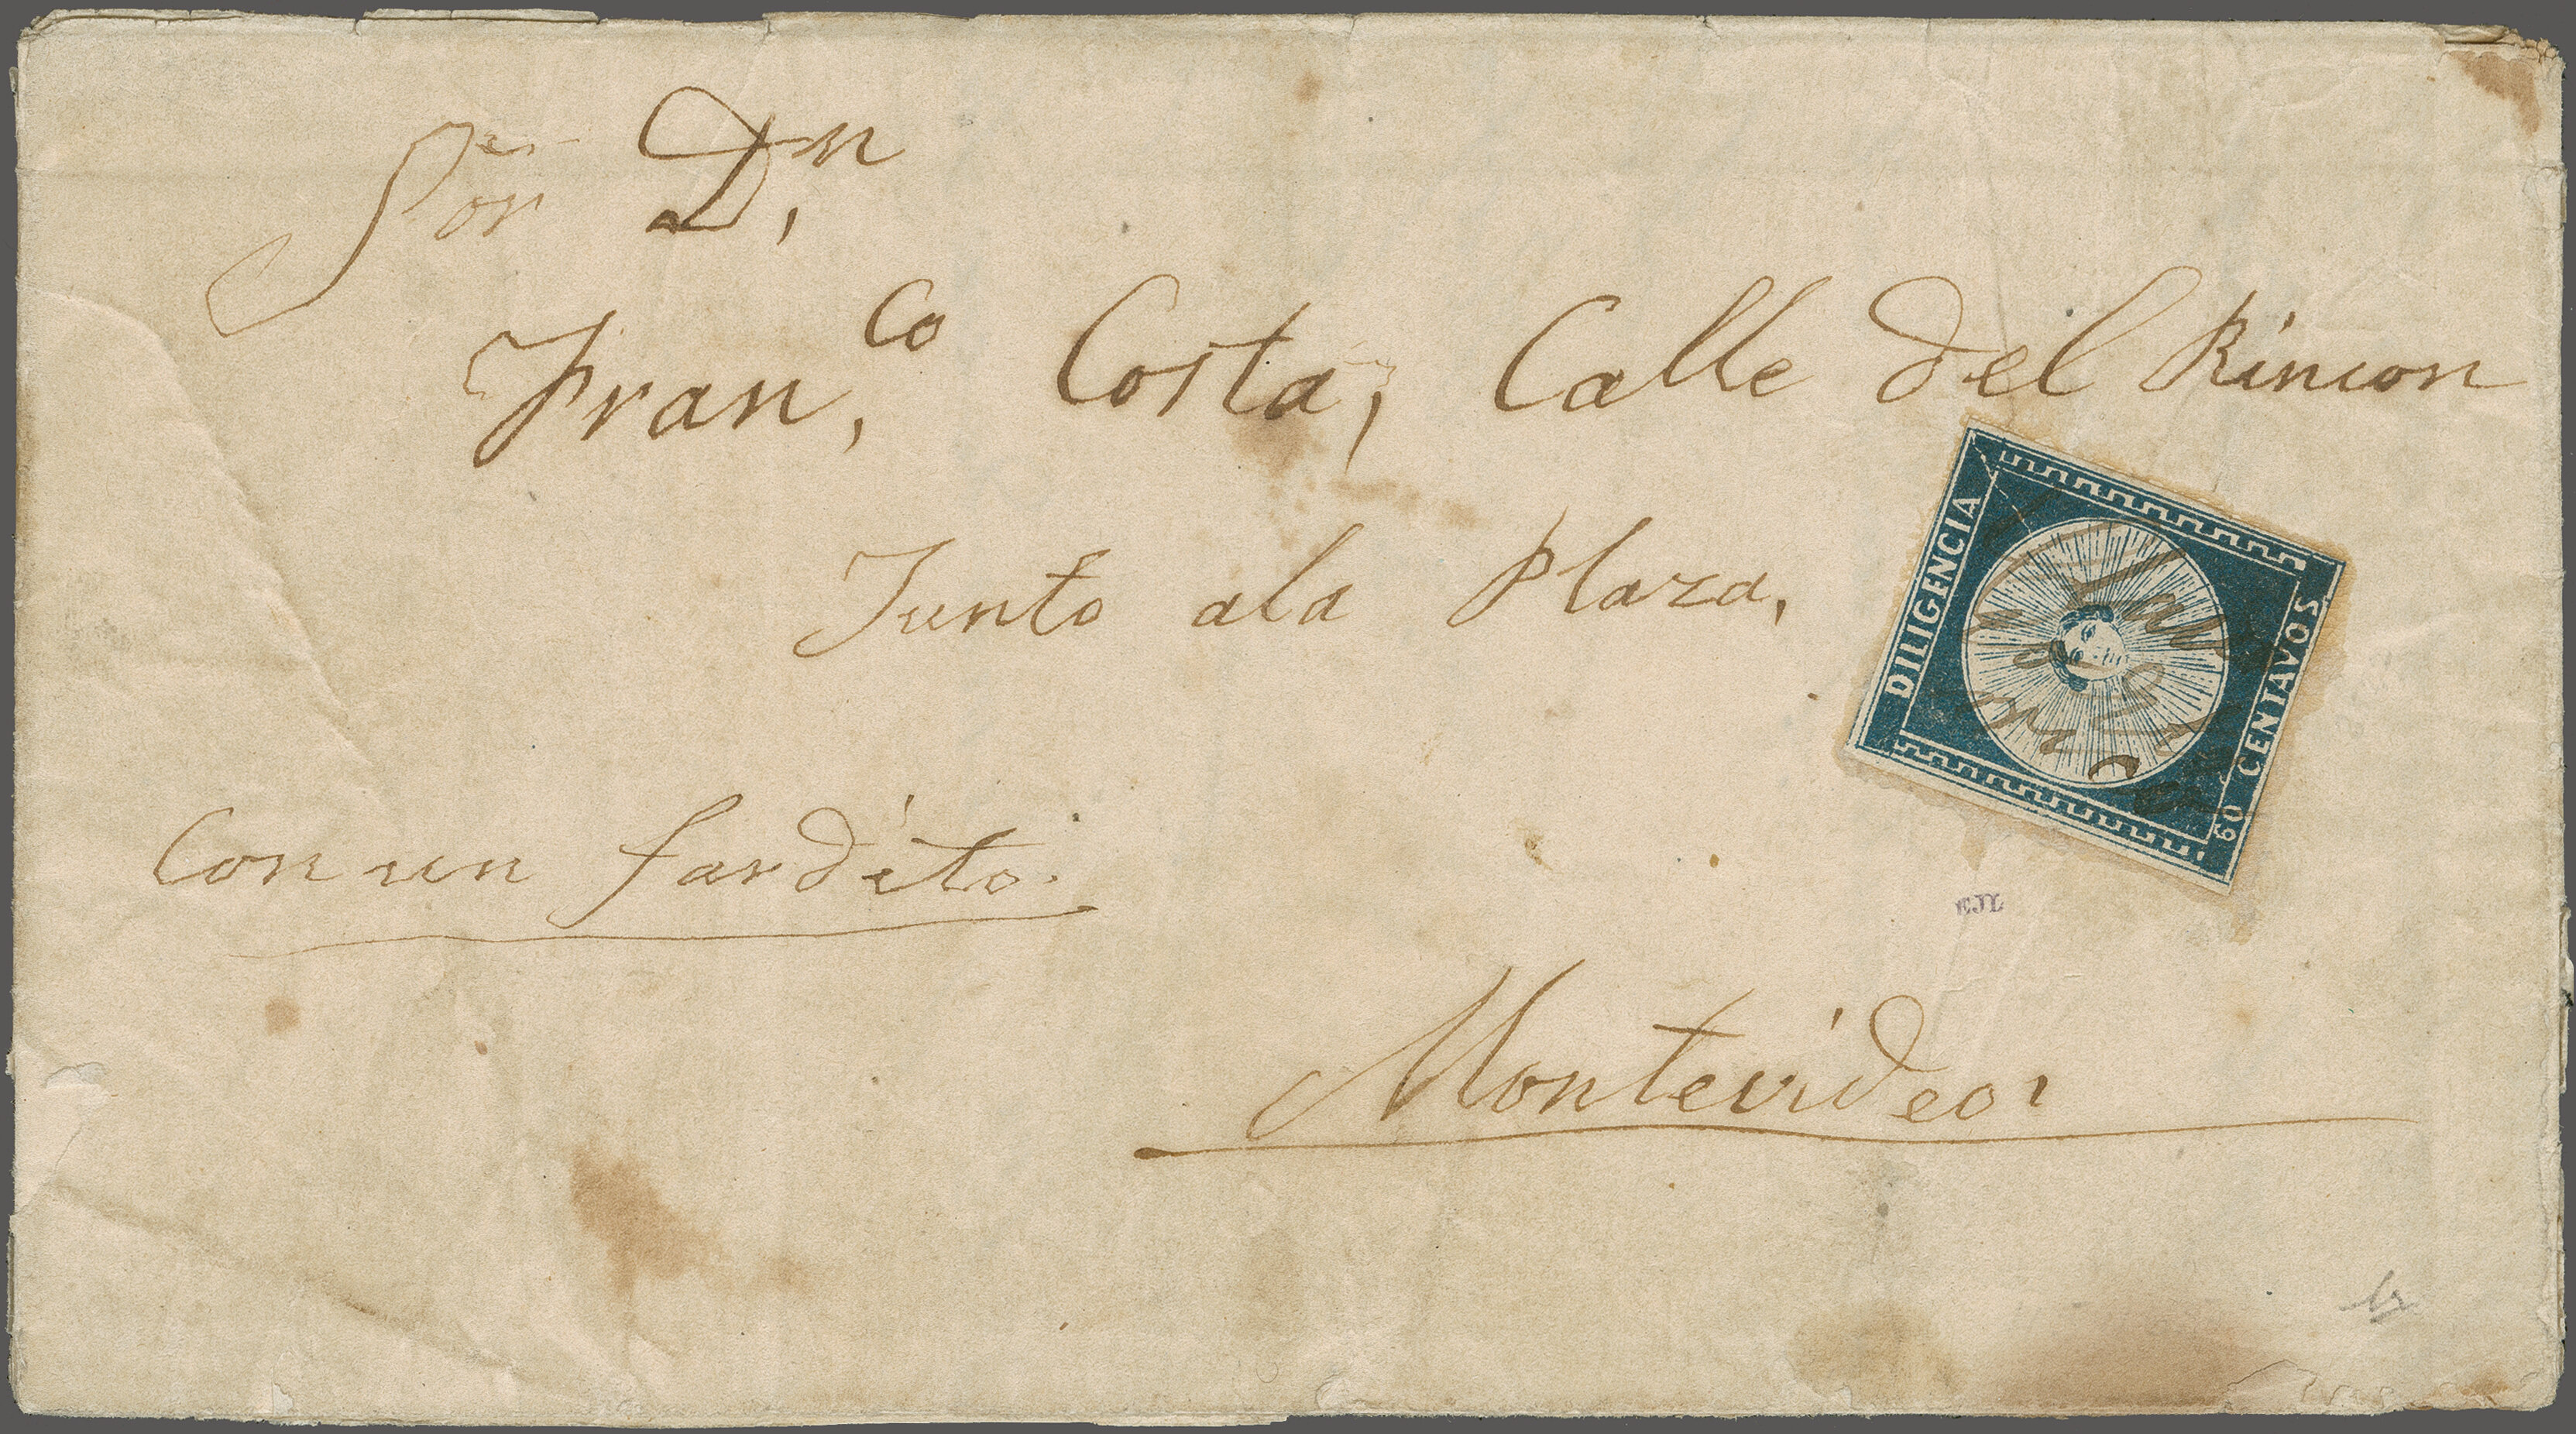 Sor Dn,
Fran,co Costa, Calle del Rincon
Junto ala Plaza,
DILIGENCIA
60 CENTAVOS
Con un fardito.
EJL
Montevideo,